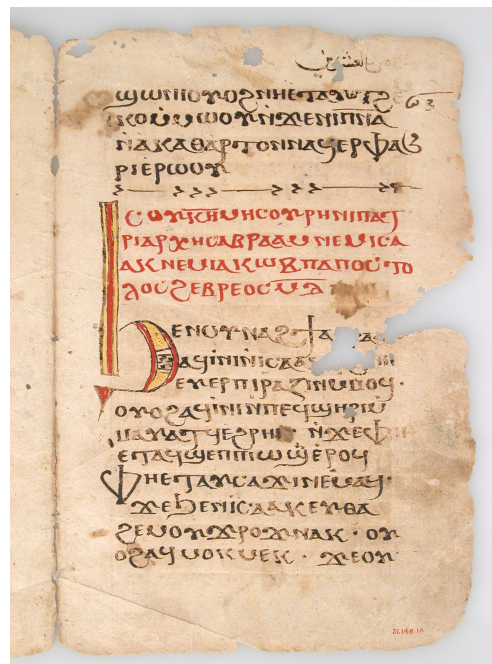 ϣⲱⲛⲓⲟⲩⲟϩⲛⲏⲉⲧⲁⲩⲧϩ
ⲕⲟⲙⲙⲱⲟⲩⲛϫⲉⲛⲓⲡⲛⲁ
ⲛⲁⲕⲁⲑⲁⲣⲧⲟⲛⲛⲁϥⲉⲣⲫⲁϧ
ⲣⲓⲉⲣⲱⲟⲩ
ⲥⲟⲩⲕⲏⲙⲏⲥⲟⲩⲣⲏⲛⲓⲡⲁⲧ
ⲣⲓⲁⲣⲭⲏⲥⲁⲃⲣⲁⲁⲙⲛⲉⲙⲓⲥⲁ
ⲁⲕⲛⲉⲙⲓⲁⲕⲱⲃⲡⲁⲡⲟⲥⲧⲟ
ⲗⲟⲥϩⲉⲃⲣⲉⲟⲥ
ϧⲉⲛⲟⲩⲛⲁϩϯⲁ
ⲁϥⲓⲛⲓⲛⲓⲥⲁⲁ
ⲉⲩⲉⲣⲡⲓⲣⲁⲍⲓⲛⲙⲙⲟϥ·
ⲟⲩⲟϩⲁϥⲓⲛⲓⲙⲡⲉϥϣⲏⲣⲓⲙ
ⲙⲁⲩⲁⲧϥⲉϩⲣⲏⲓ· ⲛϫⲉⲫⲏ
ⲉⲧⲁϥϣⲉⲡⲛⲓⲱϣⲉⲣⲟϥ
ⲫⲏⲉⲧⲁⲩⲥⲁϫⲓⲛⲉⲙⲁϥ·
ϫⲉϧⲉⲛⲓⲥⲁⲁⲕⲉⲩⲑⲁ
ϩⲉⲙⲟⲩϫⲣⲟϫⲛⲁⲕ· ⲟⲩ
ⲟϩⲁϥⲙⲟⲕⲙⲉⲕ· ϫⲉⲟⲩ
21.148.1a